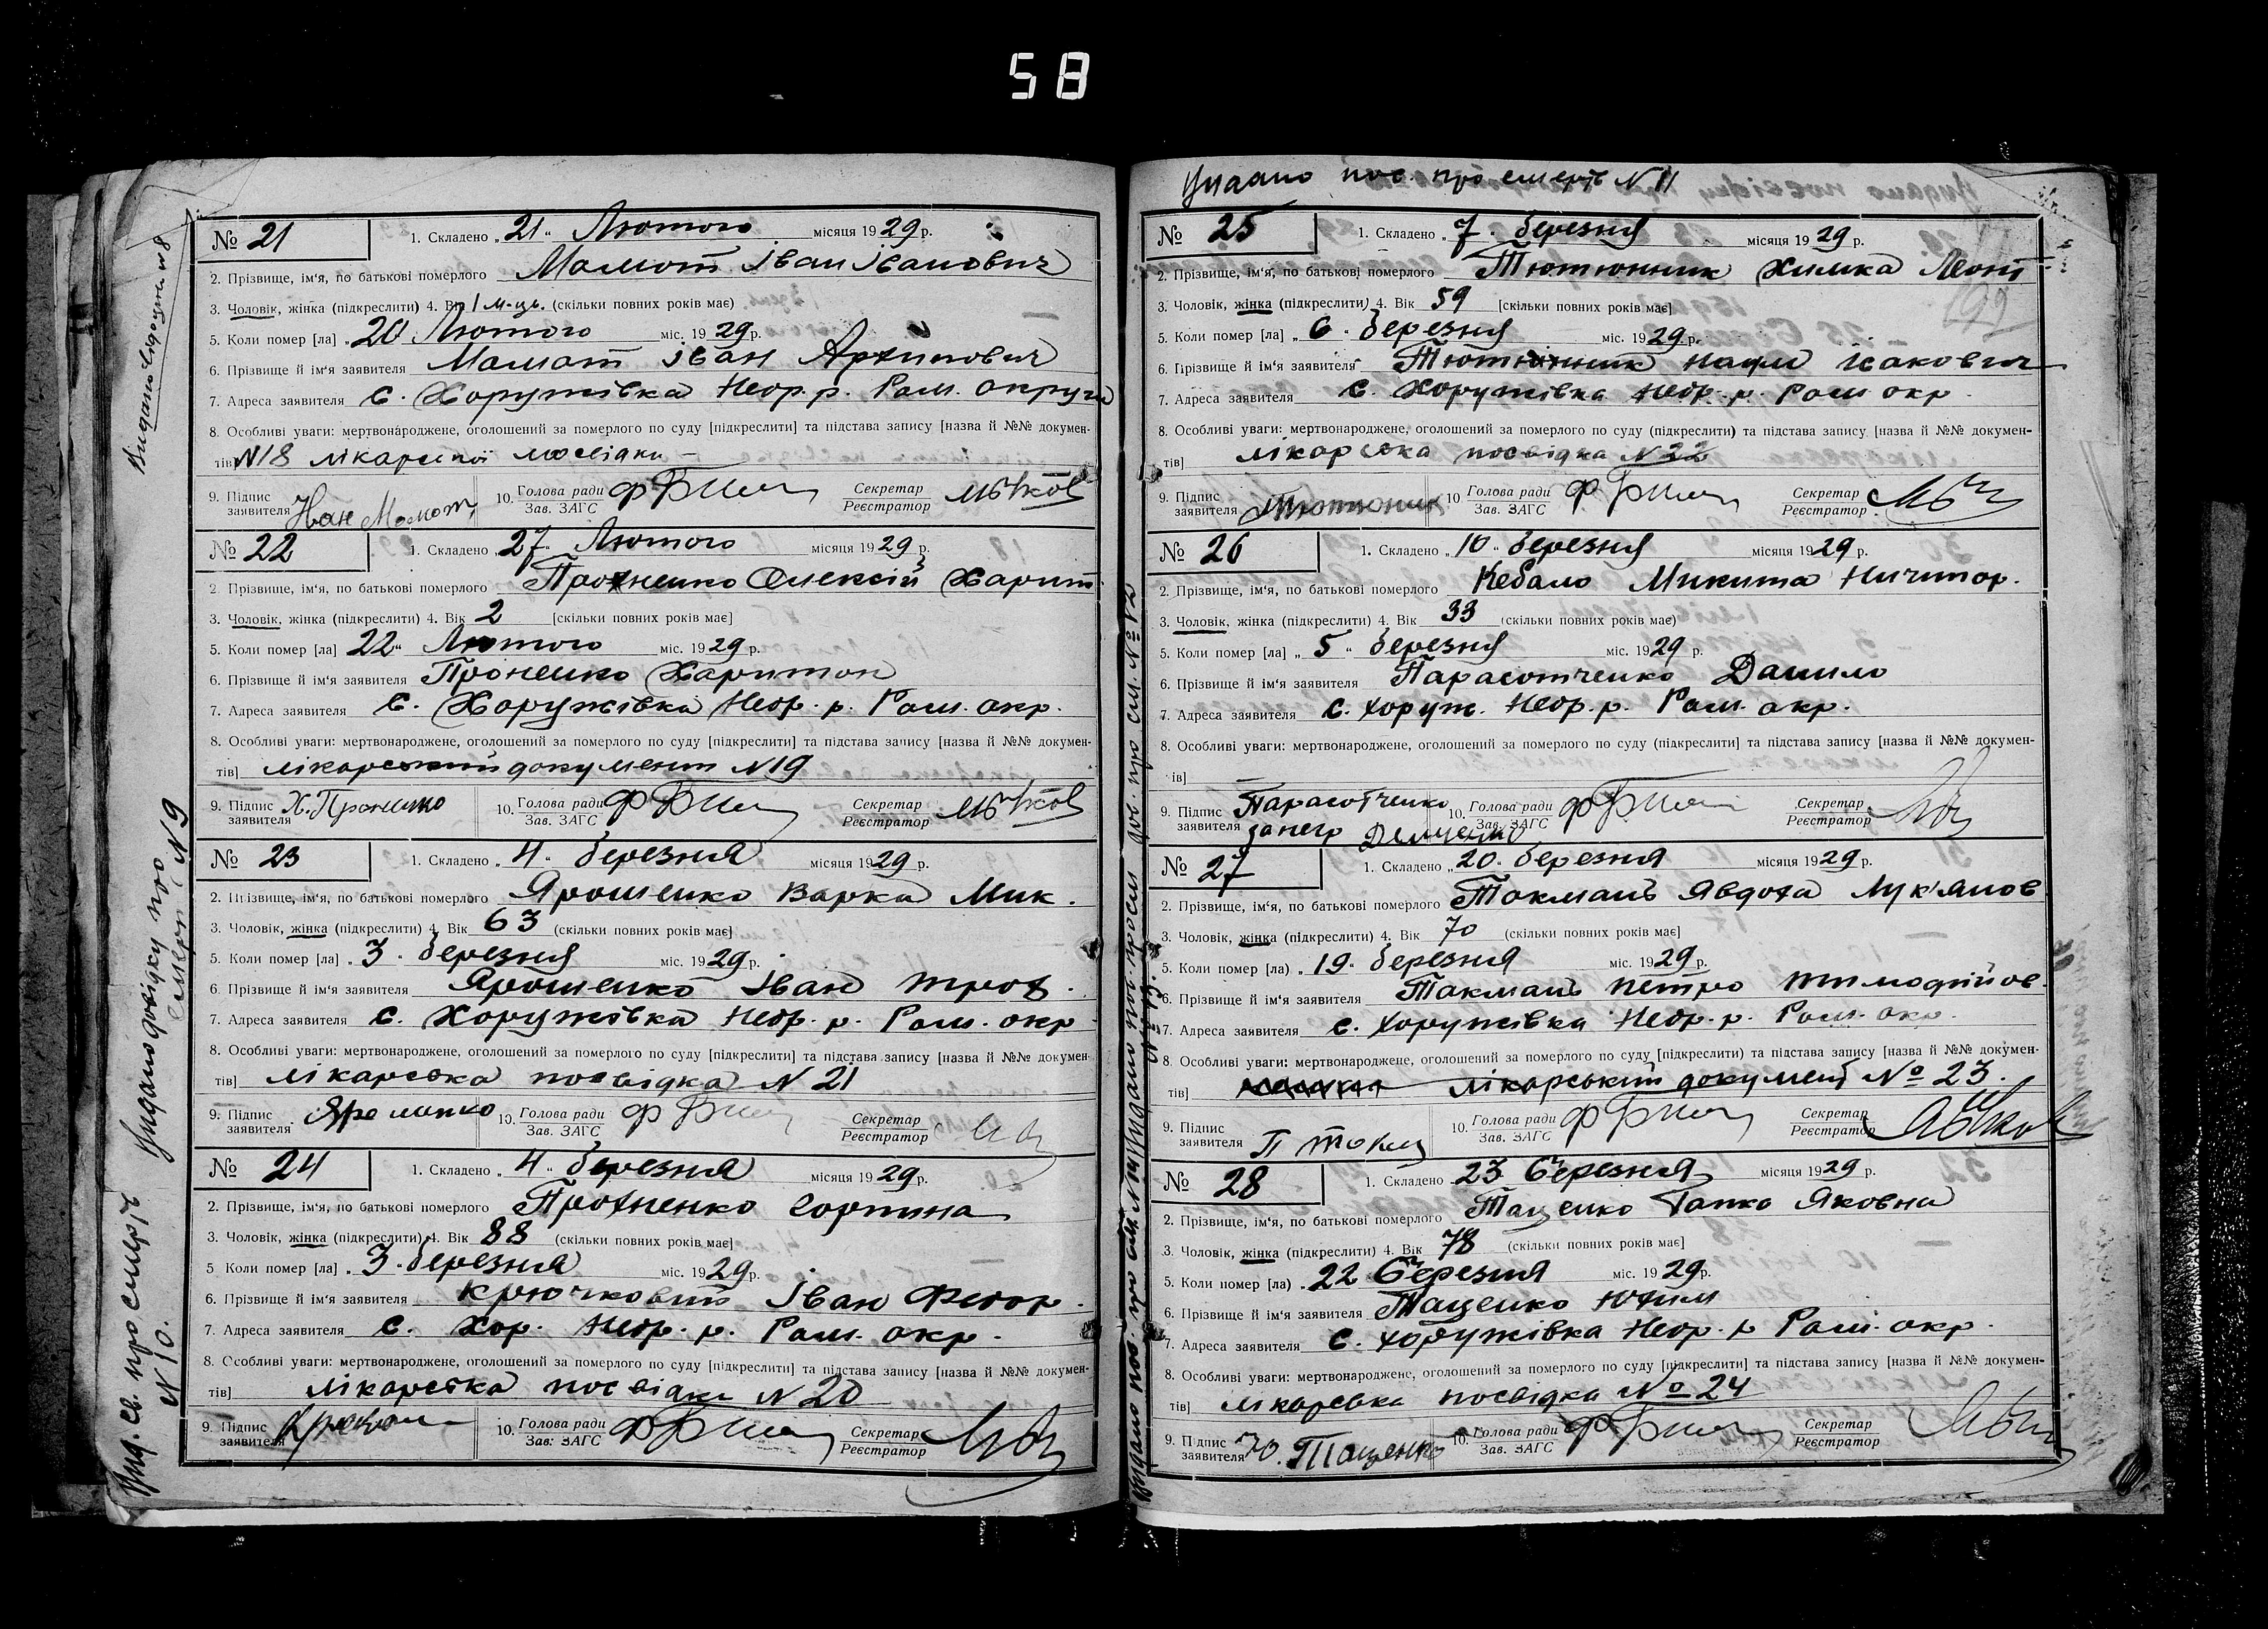 58
Видано свідоцтво №8
№ 21
1. Складено „21“ Лютого місяця 1929 р.
2. Прізвище, ім'я, по батькові померлого Момот Іван Іванович
3. Чоловік, жінка (підкреслити) 4. Вік 1 м-ць. (скільки повних років має)
5. Коли помер [ла] „20 Лютого міс. 1929 р.
6. Прізвище й ім'я заявителя Момот Іван Архипович
7. Адреса заявителя с. Хоружівка Недр. р. Ром. округи
8. Особливі уваги: мертвонароджене, оголошений за померлого по суду [підкреслити] та підстава запису [назва й №№ докумен-
тів] №18 лікарської посвідки
9. Підпис заявителя Іван Момот 10. Голова ради Зав. ЗАГС Секретар Реєстратор
№ 22
1. Складено „27“ Лютого місяця 1929 р.
2. Прізвище, ім'я, по батькові померлого Прохненко Олексій Харит
3. Чоловік, жінка (підкреслити) 4. Вік 2 [скільки повних років має]
5. Коли помер [ла] 22“ Лютого міс. 1929 р.
6. Прізвище й ім'я заявителя Проненко Харитон
7. Адреса заявителя с. Хоружівка Недр. р. Ром. окр.
8. Особливі уваги: мертвонароджене, оголошений за померлого по суду [підкреслити] та підстава запису [назва й №№ докумен-
тів] лікарський документ №19
9. Підпис заявителя Х. Проненко 10. Голова ради Зав. ЗАГС Секретар Реєстратор
Видано довідку про смерть №9
№ 23
1. Складено „4“ березня місяця 1929 р.
2. Прізвище, ім'я, по батькові померлого Ярошенко Варка Мик.
3. Чоловік, жінка (підкреслити) 4. Вік 63 (скільки повних років має]
5. Коли помер [ла] „3“ березня міс. 1929 р.
6. Прізвище й ім'я заявителя Ярошенко Іван Троф.
7. Адреса заявителя с. Хоружівка Недр. р. Ром. окр
8. Особливі уваги: мертвонароджене, оголошений за померлого по суду [підкреслити] та підстава запису [назва й №№ докумен-
тів] лікарська посвідка №21
9. Підпис заявителя 10. Голова ради Зав. ЗАГС Секретар Реєстратор
Вид. св. про смерть №10.
№ 24
1. Складено „4“ березня місяця 1929 р.
2. Прізвище, ім'я, по батькові померлого Прохненко Горпина
3. Чоловік, жінка (підкреслити) 4. Вік 88 (скільки повних років має]
5 Коли помер [ла] „3“ березня міс. 1929 р.
6. Прізвище й ім'я заявителя Крючковий Іван Федор.
7. Адреса заявителя с. Хор. Недр. р. Ром. окр.
8. Особливі уваги: мертвонароджене, оголошений за померлого по суду [підкреслити] та підстава запису [назва й №№ докумен-
тів] лікарська посвідка №20
9. Підпис заявителя 10. Голова ради Зав. ЗАГС Секретар Реєстратор
Видано пос. про смерть №11
№ 25
1. Складено „7“ березня місяця 1929 р.
2. Прізвище, ім'я, по батькові померлого Тютюнник Химка Леонт
3. Чоловік, жінка (підкреслити) 4. Вік 59 [скільки повних років має]
5. Коли помер [ла] „6“ березня міс. 1929 р.
6. Прізвище й ім'я заявителя Тютюнник Наум Ісакович
7. Адреса заявителя с. Хоружівка Недр. р. Ром окр
8. Особливі уваги: мертвонароджене, оголошений за померлого по суду (підкреслити) та підстава запису [назва й №№ докумен-
тів] лікарська посвідка №22
9. Підпис заявителя Тютюник 10. Голова ради Зав. ЗАГС Секретар Реєстратор
№ 26
1. Складено „10“ березня місяця 1929 р.
2. Прізвище, ім'я, по батькові померлого Кебало Микита Ничипор.
3. Чоловік, жінка (підкреслити) 4. Вік 33 (скільки повних років має)
5. Коли помер [ла] „5“ березня міс. 1929 р.
6. Прізвище й ім'я заявителя Парасотченко Данило
7. Адреса заявителя с. Хоруж. Недр. р. Ром. окр.
8. Особливі уваги: мертвонароджене, оголошений за померлого по суду (підкреслити] та підстава запису [назва й №№ докумен-
ів]
9. Підпис заявителя Парасотченко за него Демченко 10. Голова ради Зав. ЗАГС Секретар Реєстратор
№ 27
1. Складено „20“ березня місяця 1929 р.
2. Прізвище, ім'я, по батькові померлого Токмань Явдоха Лук'янов
3. Чоловік, жінка (підкреслити) 4. Вік 70 (скільки повних років має]
5. Коли помер [ла) „19“ березня міс. 1929 р.
6. Прізвище й ім'я заявителя Токмань Петро Тимофійов.
7. Адреса заявителя с. Хоружівка Недр. р. Ром. окр.
8. Особливі уваги: мертвонароджене, оголошений за померлого по суду [підкреслити) та підстава запису [назва й №№ докумен-
тів] лікарський документ № 23.
9. Підпис заявителя 10. Голова ради Зав. ЗАГС Секретар Реєстратор
№ 28
1. Складено 23 березня місяця 1929 р.
2. Прізвище, ім'я, по батькові померлого Таценко Гапка Яковна
3. Чоловік, жінка (підкреслити) 4. Вік 78 (скільки повних років має]
5. Коли помер [ла) „22 березня міс. 1929 р.
6. Прізвище й ім'я заявителя Таценко Юхим
7. Адреса заявителя с. Хоружівка Недр. р Ром. окр.
8. Особливі уваги: мертвонароджене, оголошений за померлого по суду [підкреслити] та підстава запису [назва й №№ докумен-
тів] лікарська посвідка № 24
9. Підпис заявителя Ю. Таценко 10. Голова ради Зав. ЗАГС Секретар Реєстратор